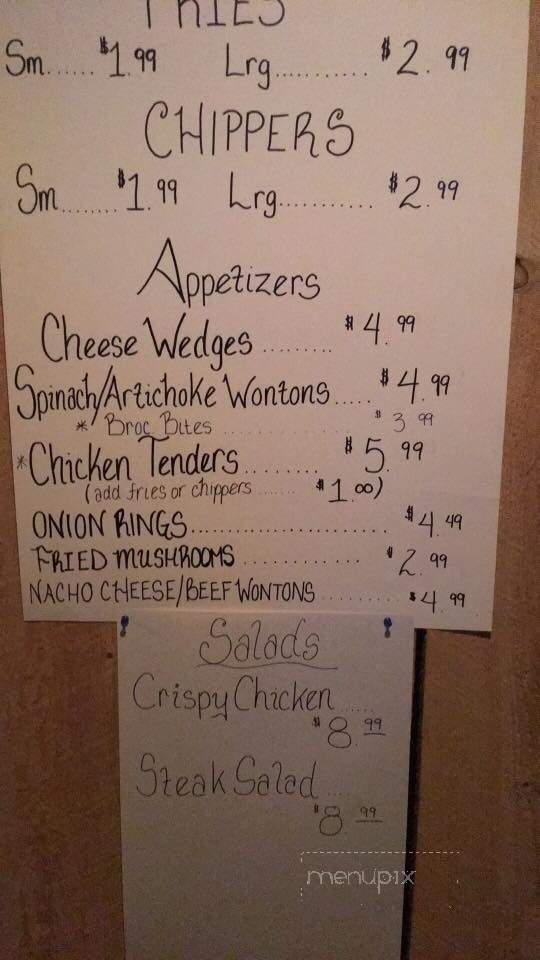 FRIES
Sm...... $1.99 Lrg........... $2.99
CHIPPERS
Sm........ $1.99 Lrg........... $2.99
Appetizers
Cheese Wedges ......... $4.99
Spinach/Artichoke Wontons..... $4.99
* Broc Bites ................ $3.99
*Chicken Tenders........ $5.99
(add fries or chippers ...... $1.00)
ONION RINGS........................ $4.49
FRIED MUSHROOMS ............ $2.99
NACHO CHEESE/BEEF WONTONS ......... $4.99
Salads
Crispy Chicken .....
$8.99
Steak Salad ....
$8.99
menupix